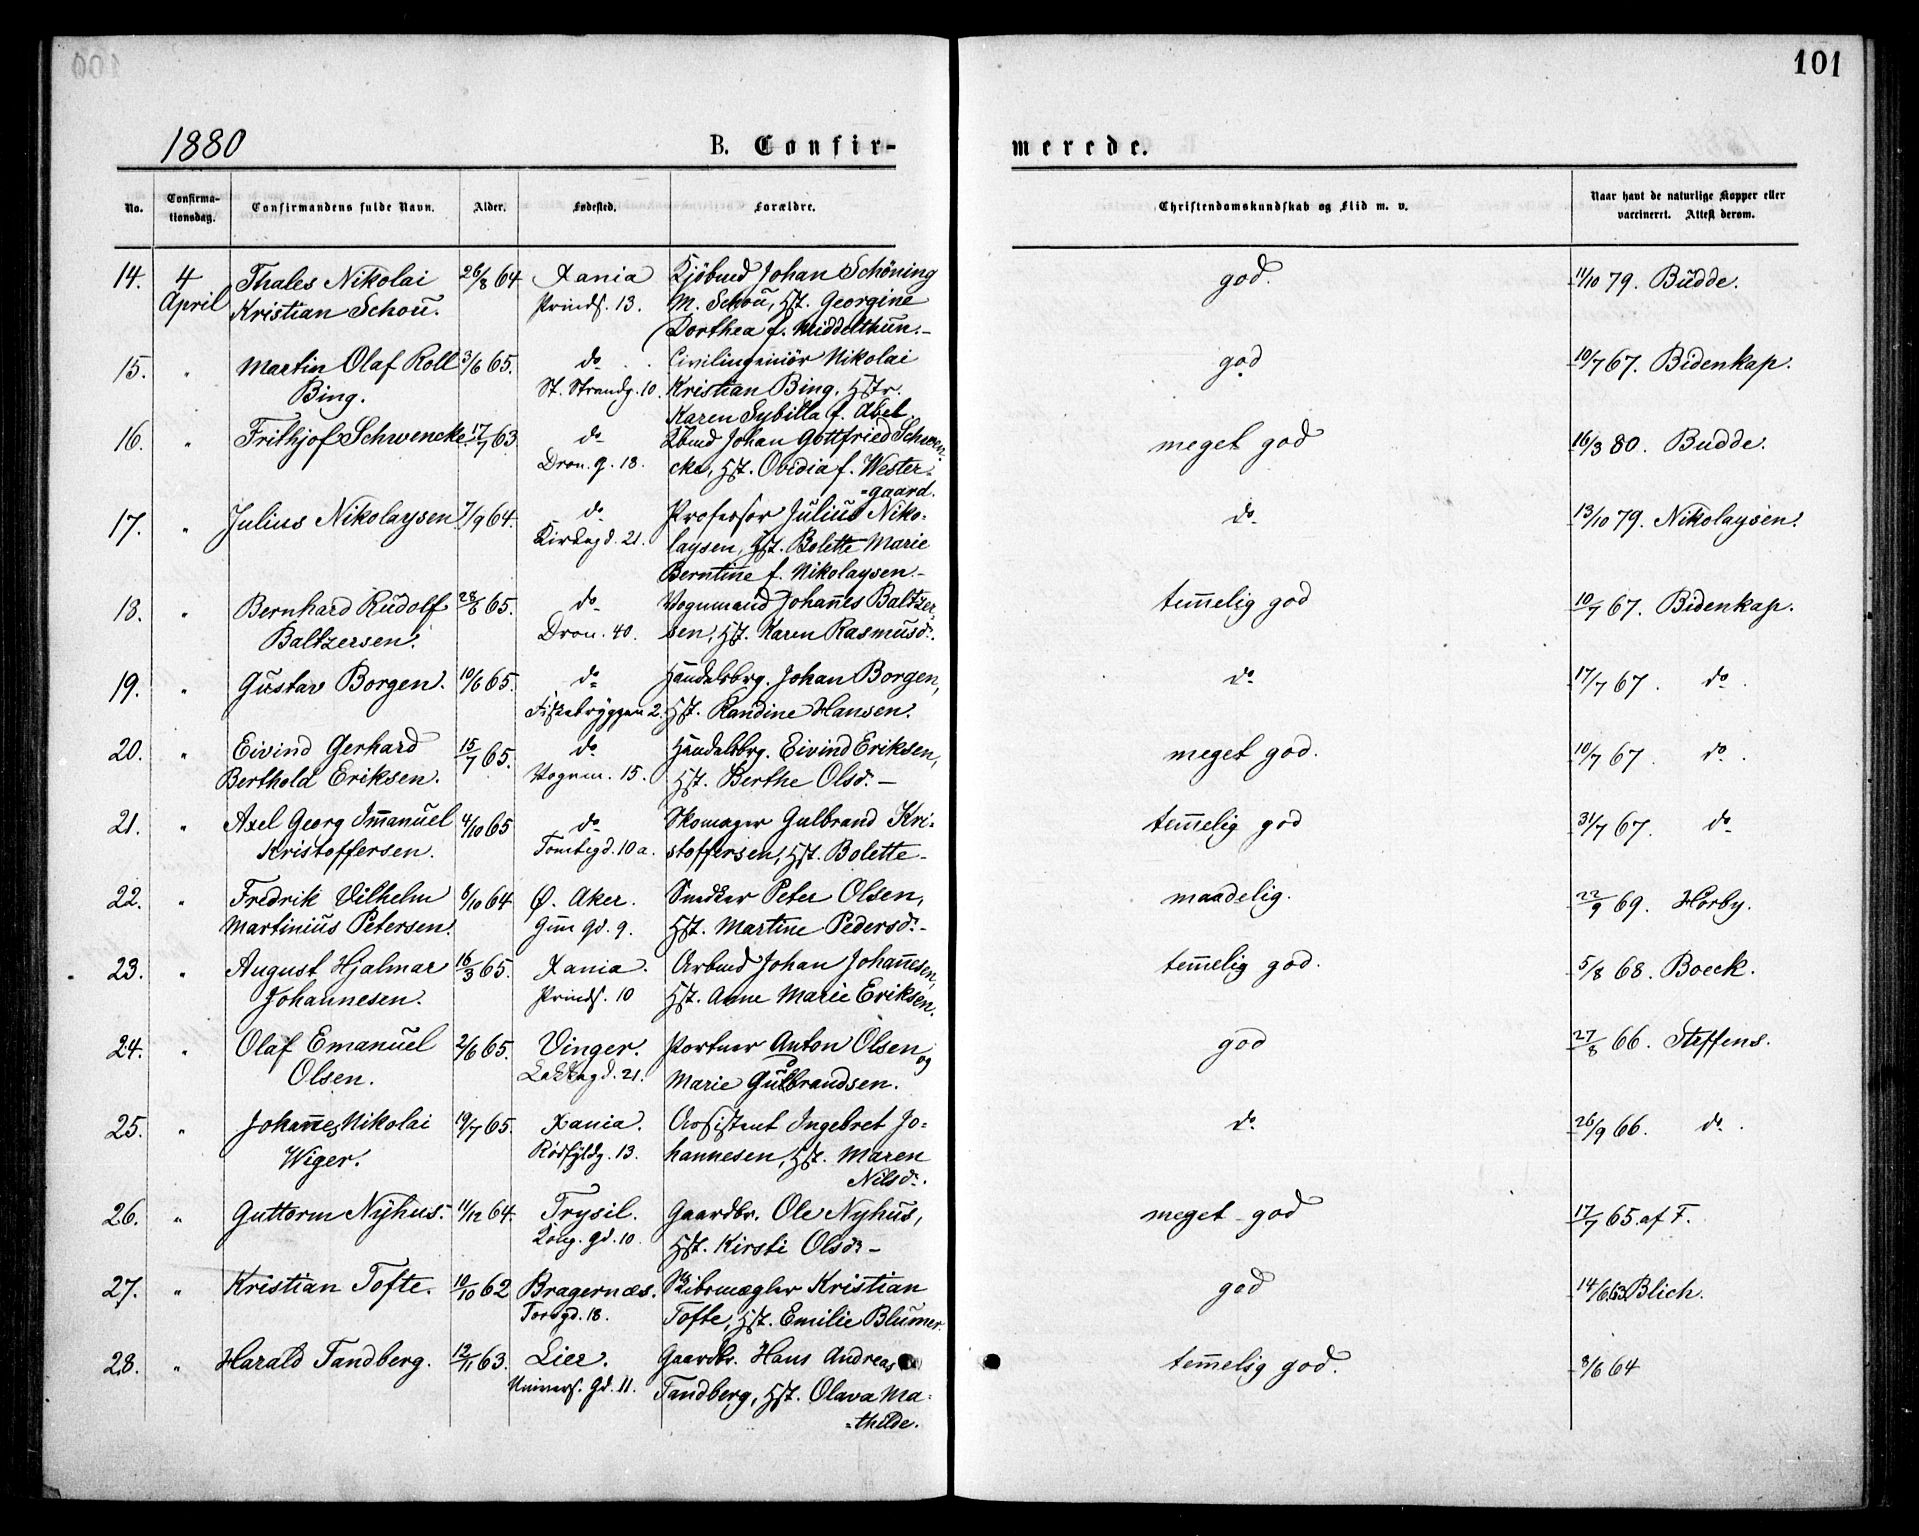 101
1880
B. Confir-
merede.
No.
Confirma-
tionsdag.
Confirmandens fulde Navn.
Alder.
Fødested.
Forældre.
Christendomskundskab og Flid m. v.
Naar havt de naturlige Kopper eller
vaccineret. Attest derom.
14. 4 Thales Nikolai 26/8 64 Xania Kjöbmd Johan Schöning god. 11/10 79. Budde.
April Kristian Schou. Prinds. 13. M. Schou, Hst. Georgine
Dorthea f. Middelthun.-
15. " Martin Olaf Roll 3/6 65. do Civilingeniör Nikolai god 10/7 67. Bidenkap.
Bing. St. Strandg. 10. Kristian Bing, Hstr.
Karen Sybilla f. Abel.
16. " Frithjof Schwencke 17/7 63. do Kbmd Johan Gottfried Schwen- meget god 16/3 80. Budde.
Dron. g. 18. cke, Hst. Ovidia f. Wester-
=gaard.
17. " Julius Nikolaysen 7/9 64. do Professor Julius Niko- do 13/10 79. Nikolaysen.
Kirkegd. 21. laysen, Hst. Bolette Marie
Berntine f. Nikolaysen.-
18. " Bernhard Rudolf 28/6 65. do Vognmand Johan̄es Baltzer- tem̄elig god 10/7 67. Bidenkap.
Baltzersen. Dron. 40. sen, Hst. Karen Rasmusd.
19. " Gustav Borgen. 10/6 65. do Handelsbrg. Johan Borgen, do 17/7 67. do.
Fiskebryggen 2. Hst. Randine Hansen.
20. " Eivind Gerhard 15/7 65. do Handelsbrg. Eivind Eriksen, meget god. 10/7 67. do.
Berthold Eriksen. Vognm. 15. Hst. Berthe Olsd.-
21. " Axel Georg Im̄anuel 4/10 65 do Skomager Gulbrand Kri- tem̄elig god 31/7 67. do
Kristoffersen. Tomtegd. 10a. stoffersen, Hst. Bolette-
22. " Fredrik Vilhelm 8/10 64 Ø. Aker. Snedker Peter Olsen, maadelig. 22/9 69. Horby.
Martinius Petersen. Grün Gd. 9. Hst. Martine Pedersd.-
23. " August Hjalmar 16/3 65. Xania. Arbmd Johan Johan̄esen, tem̄elig god. 5/8 68. Boeck.
Johannesen. Prinds. 10 Hst. Anne Marie Eriksen.
24. " Olaf Emanuel 2/6 65. Vinger. Portner Anton Olsen og god 27/8 66. Steffens.
Olsen. Lakkegd. 21. Marie Gulbrandsen.
25. " Johan̄es Nikolai 19/7 65. Xania. Assistent Ingebret Jo- do. 26/9 66. do.
Wiger. Rödfyldg. 13. hannesen, Hst. Maren
Nilsd.
26. " Guttorm Nyhus. 11/12 64. Trysil. Gaardbr. Ole Nyhus, meget god 17/7 65. af F.
Kong. gd. 10. Hst. Kirsti Olsd.-
27. " Kristian Tofte. 10/10 62 Bragernæs. Skibsmægler Kristian god 14/6 63. Blich.
Torvgd. 18. Tofte, Hst. Emilie Blumer.
28. " Harald Tandberg. 12/11 63. Lier. Gaardbr. Hans Andreas tem̄elig god. 8/6 64
Univers. Gd. 11. Tandberg, Hst. Olava Ma-
=thilde.